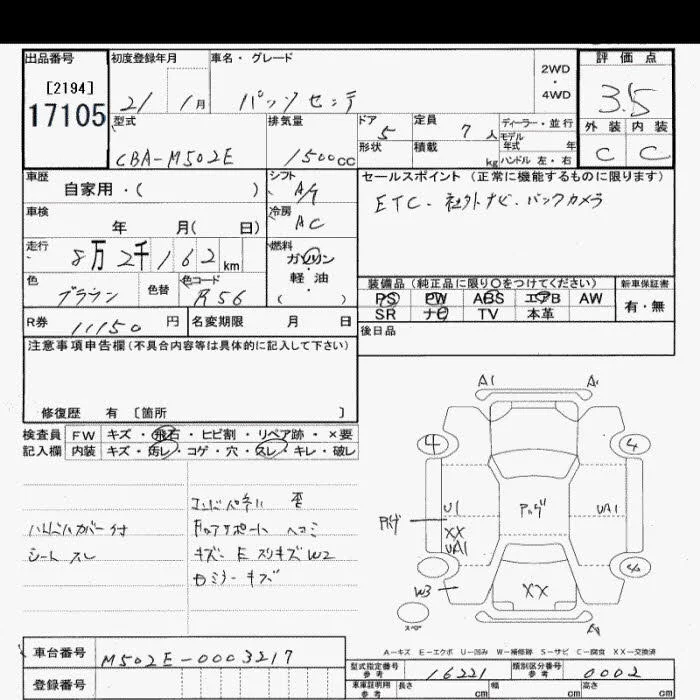 出品番号 初度登録年月 車名・グレード 2WD・4WD 評価点
[2194]
17105
21 1月 パッソセッテ 3.5
型式 排気量 ドア 5 定員 7人 ディーラー・並行 外装 内装
モデル年式 年
CBA-M502E 1500cc 形状 積載 kg ハンドル 左・右 C C
車歴 シフト セールスポイント(正常に機能するものに限ります)
自家用・( ) A/T ETC. 社外ナビ. バックカメラ
車検 冷房
年 月( 日) AC
走行 燃料
8万2千162km ガソリン・軽油( )
色 色替 色コード 装備品(純正品に限り○をつけてください) 新車保証書
ブラウン R56 PS PW ABS エアB AW 有・無
SR ナビ TV 本革
R券 11150円 名変期限 月 日 後日品
注意事項申告欄(不具合内容等は具体的に記入して下さい)
修復歴 有 [箇所 ]
A1
検査員 FW キズ・飛石・ヒビ割・リペア跡・×要
記入欄 内装 キズ・汚レ・コゲ・穴・スレ・キレ・破レ
4 4
U1 UA1
XX
UA1
ハンドルカバー付
シート スレ
キズ. E スリキズ W2
W3 XX 4
スペア
A-キズ E-エクボ U-凹み W-補修跡 S-サビ C-腐食 XX-交換済
車台番号 M502E-0003217
型式指定番号参考 16221 類別区分番号参考 0002
登録番号
車庫証明用参考 長さ cm 幅 cm 高さ cm